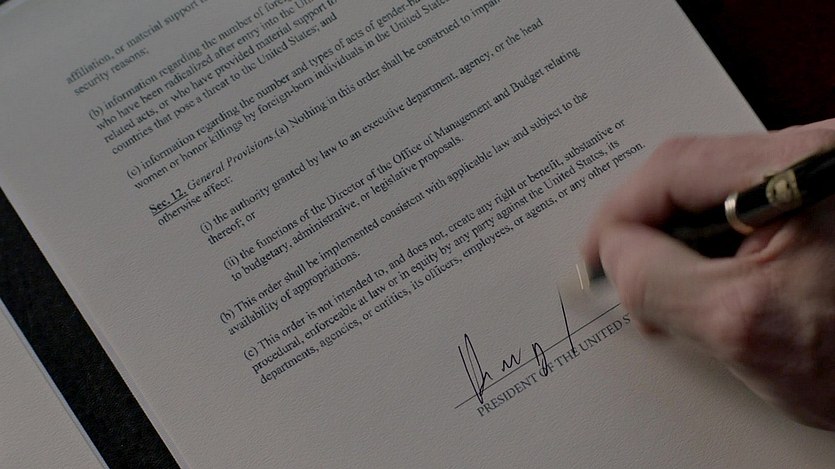 affiliation, or material support
security reasons;
(b) information regarding the number of
who have been radicalized after entry into the
related acts, or who have provided material support to
countries that pose a threat to the United States; and
(c) information regarding the number and types of acts of
women or honor killings by foreign-born individuals in the United States
Sec. 12. General Provisions. (a) Nothing in this order shall be construed to
otherwise affect:
(i) the authority granted by law to an executive department, agency, or the head
thereof; or
(ii) the functions of the Director of the Office of Management and Budget relating
to budgetary, administrative, or legislative proposals.
(b) This order shall be implemented consistent with applicable law and subject to the
availability of appropriations.
(c) This order is not intended to, and does not, create any right or benefit, substantive or
procedural, enforceable at law or in equity by any party against the United States, its
departments, agencies, or entities, its officers, employees, or agents, or any other person.
PRESIDENT OF THE UNITED S